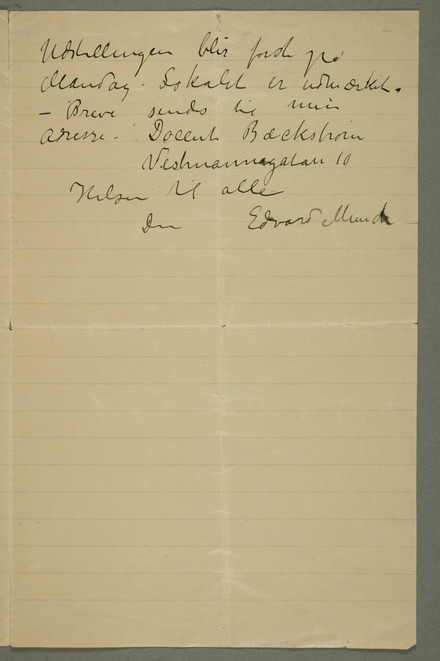 Udstillingen blir først på
Mandag. Lokalet er udmærket.
– Breve sendes til min
adresse. Docent Bæckström
Vestmannagatan 10
Hilsen til alle
Din Edvard Munch